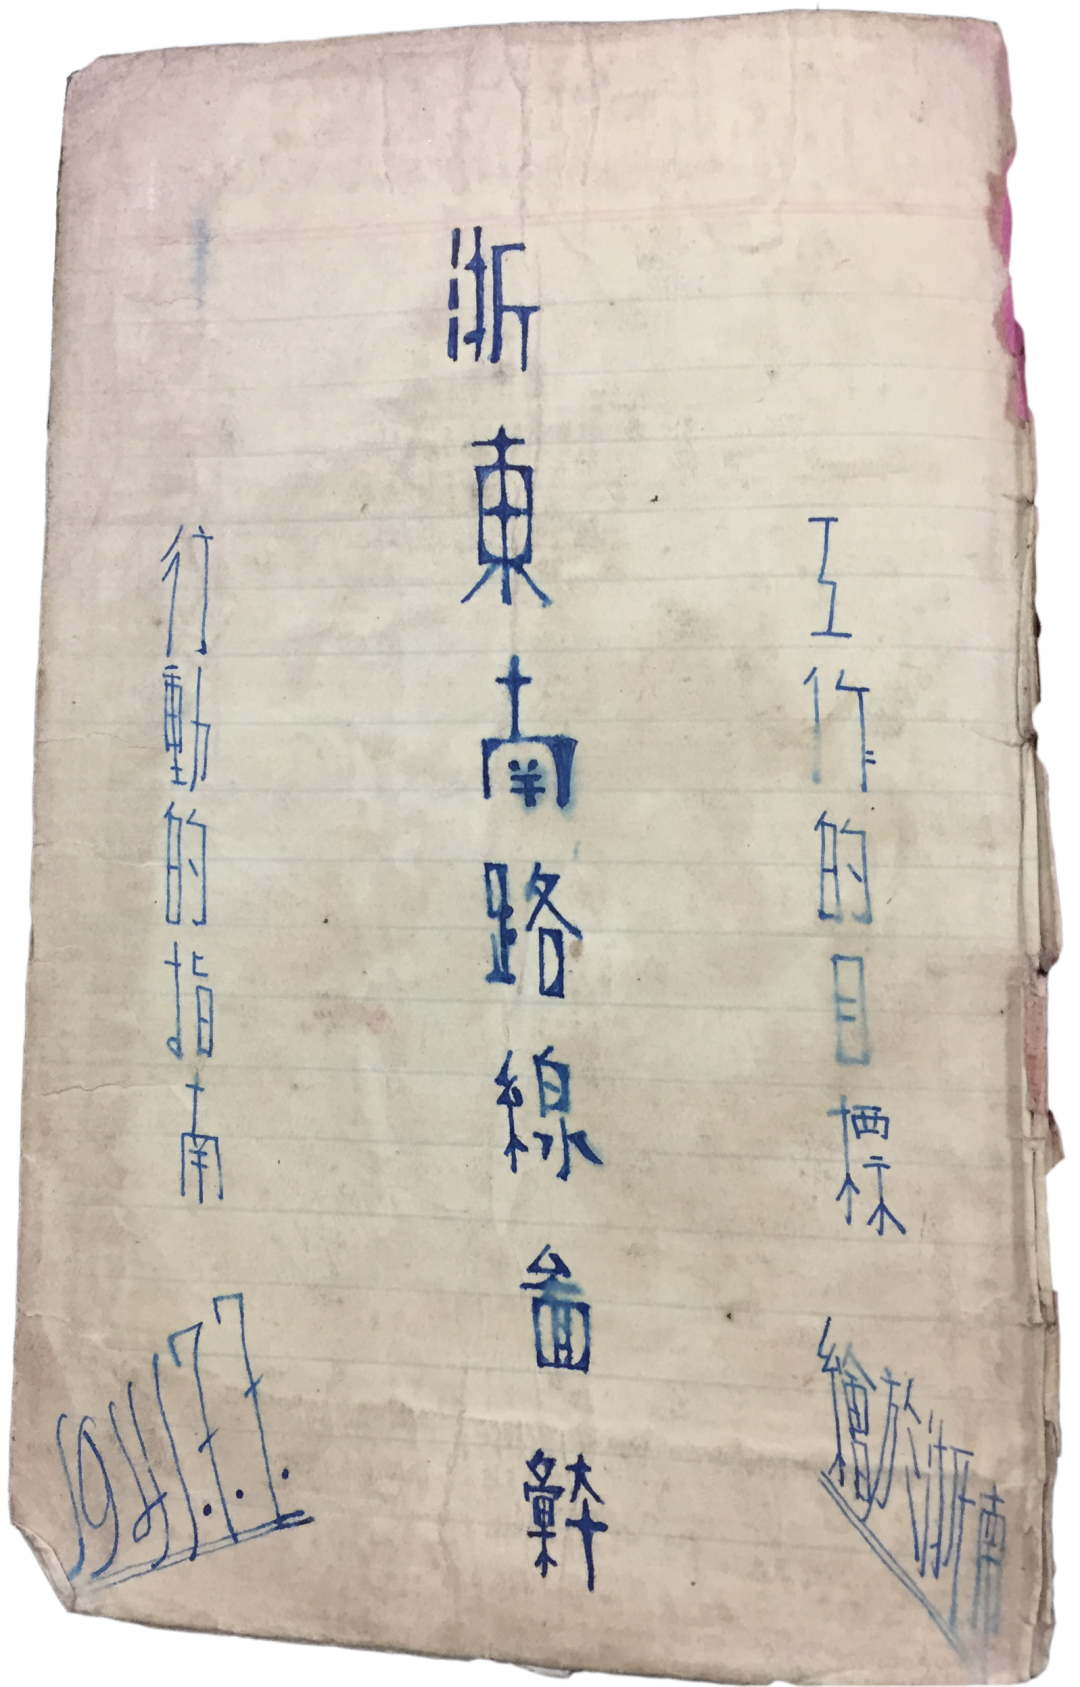 工作的目標
繪於浙東
浙東南路線啚
行動的指南
1941.7.7.